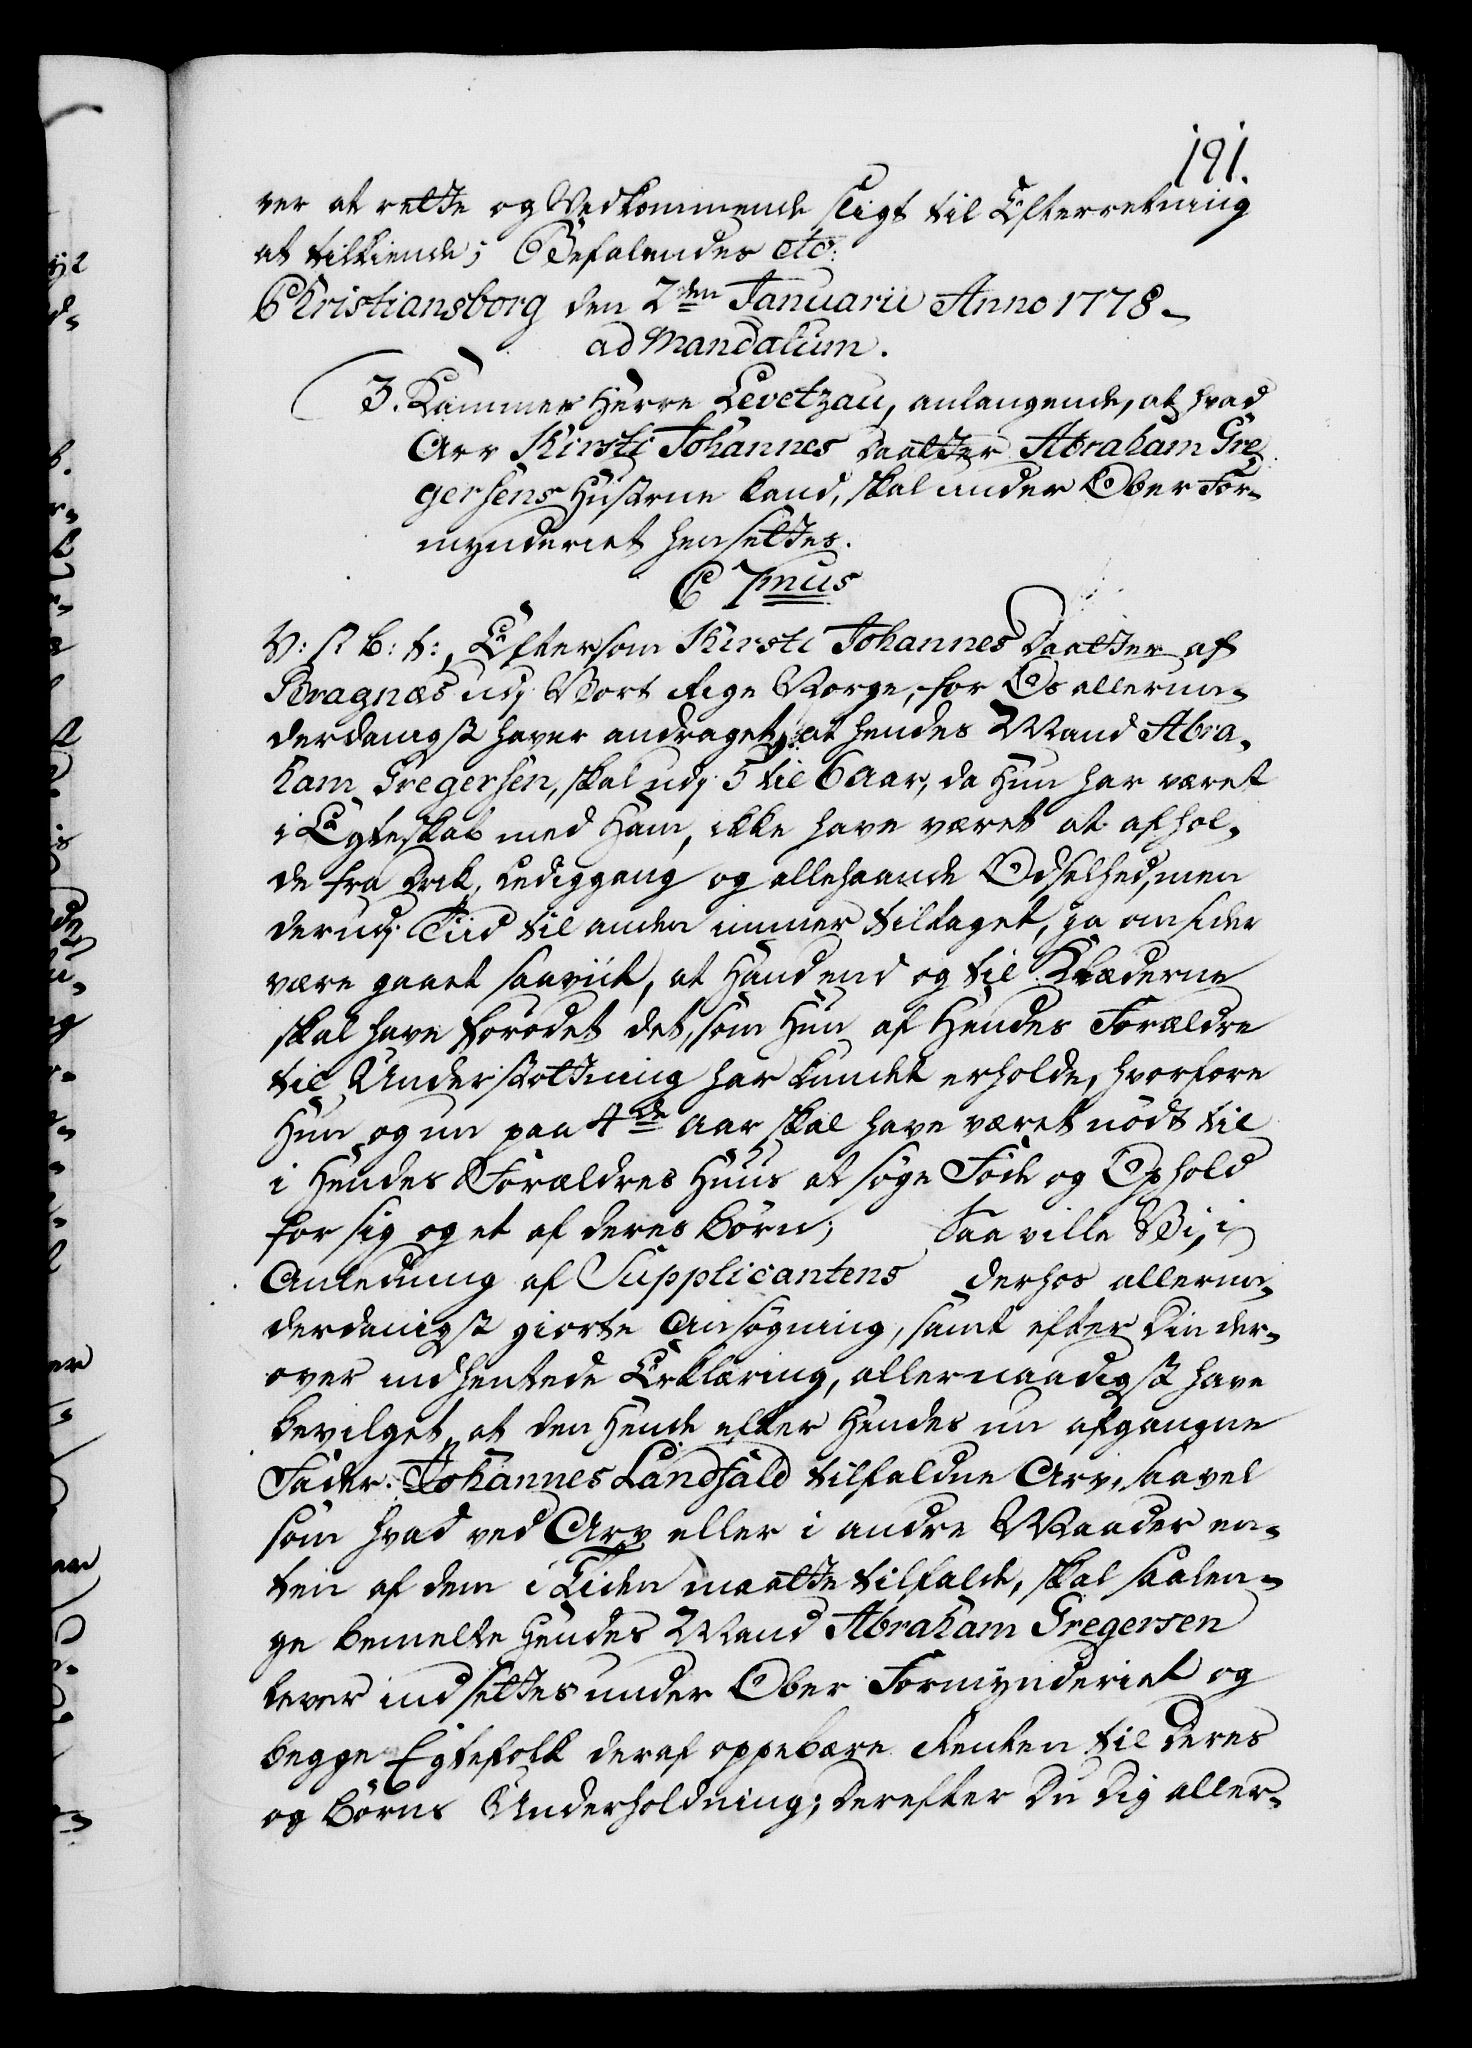 191.
ver at rette og Vedkommende sligt til Efterretning
at tilkiende; Befalendes etc:
Christiansborg den 2den Januarii Anno 1778-
ad Mandatum.
3. Kammer Herre Levetzau, anlangende, at hvad
Arv Kirsti Johannes Daatter Abraham Gre-
gersens Hustrue kand, skal under Ober For-
mynderiet hensettes.
C 7mus
V: S: B: t:, Eftersom Kirsti Johannes Daatter af
Bragnæs udj Vort Rige Norge, for Os allerun-
derdanigst haver andraget, at hendes Mand Abra-
ham Gregersen, skal udj 5 til 6 Aar, da Hun har været
i Egteskab med Ham, ikke have været at afhol-
de fra Drik, Lediggang og allehaande Ødselhed, men
derudj Tiid til anden immer tiltaget, ja omsider
være gaaet saaviit, at Hand end og til Klæderne
skal have forødet det, som Hun af Hendes Forældre
til Understøttning har kundet erholde, hvorfore
Hun og nu paa 4de Aar skal have været nødt til
i Hendes Forældres Huus at søge Føde og Ophold
for sig og et af deres Børn; Saa ville Vi, i
Anledning af Supplicantens derhos allerun-
derdanigst giorte Ansøgning, samt efter Din der-
over indhentede Erklæring, allernaadigst have
bevilget, at den Hende efter Hendes nu afgangne
Fader Johannes Landfald tilfaldne Arv, saavel
som hvad ved Arv eller i andre Maader en-
ten af dem i Tiden maatte tilfalde, skal saalen-
ge bemelte Hendes Mand Abraham Gregersen
lever indsettes under Ober Formynderiet og
begge Egtefolk deraf oppebære Renten til deres
og Børns Underholdning; Derefter Du Dig aller-